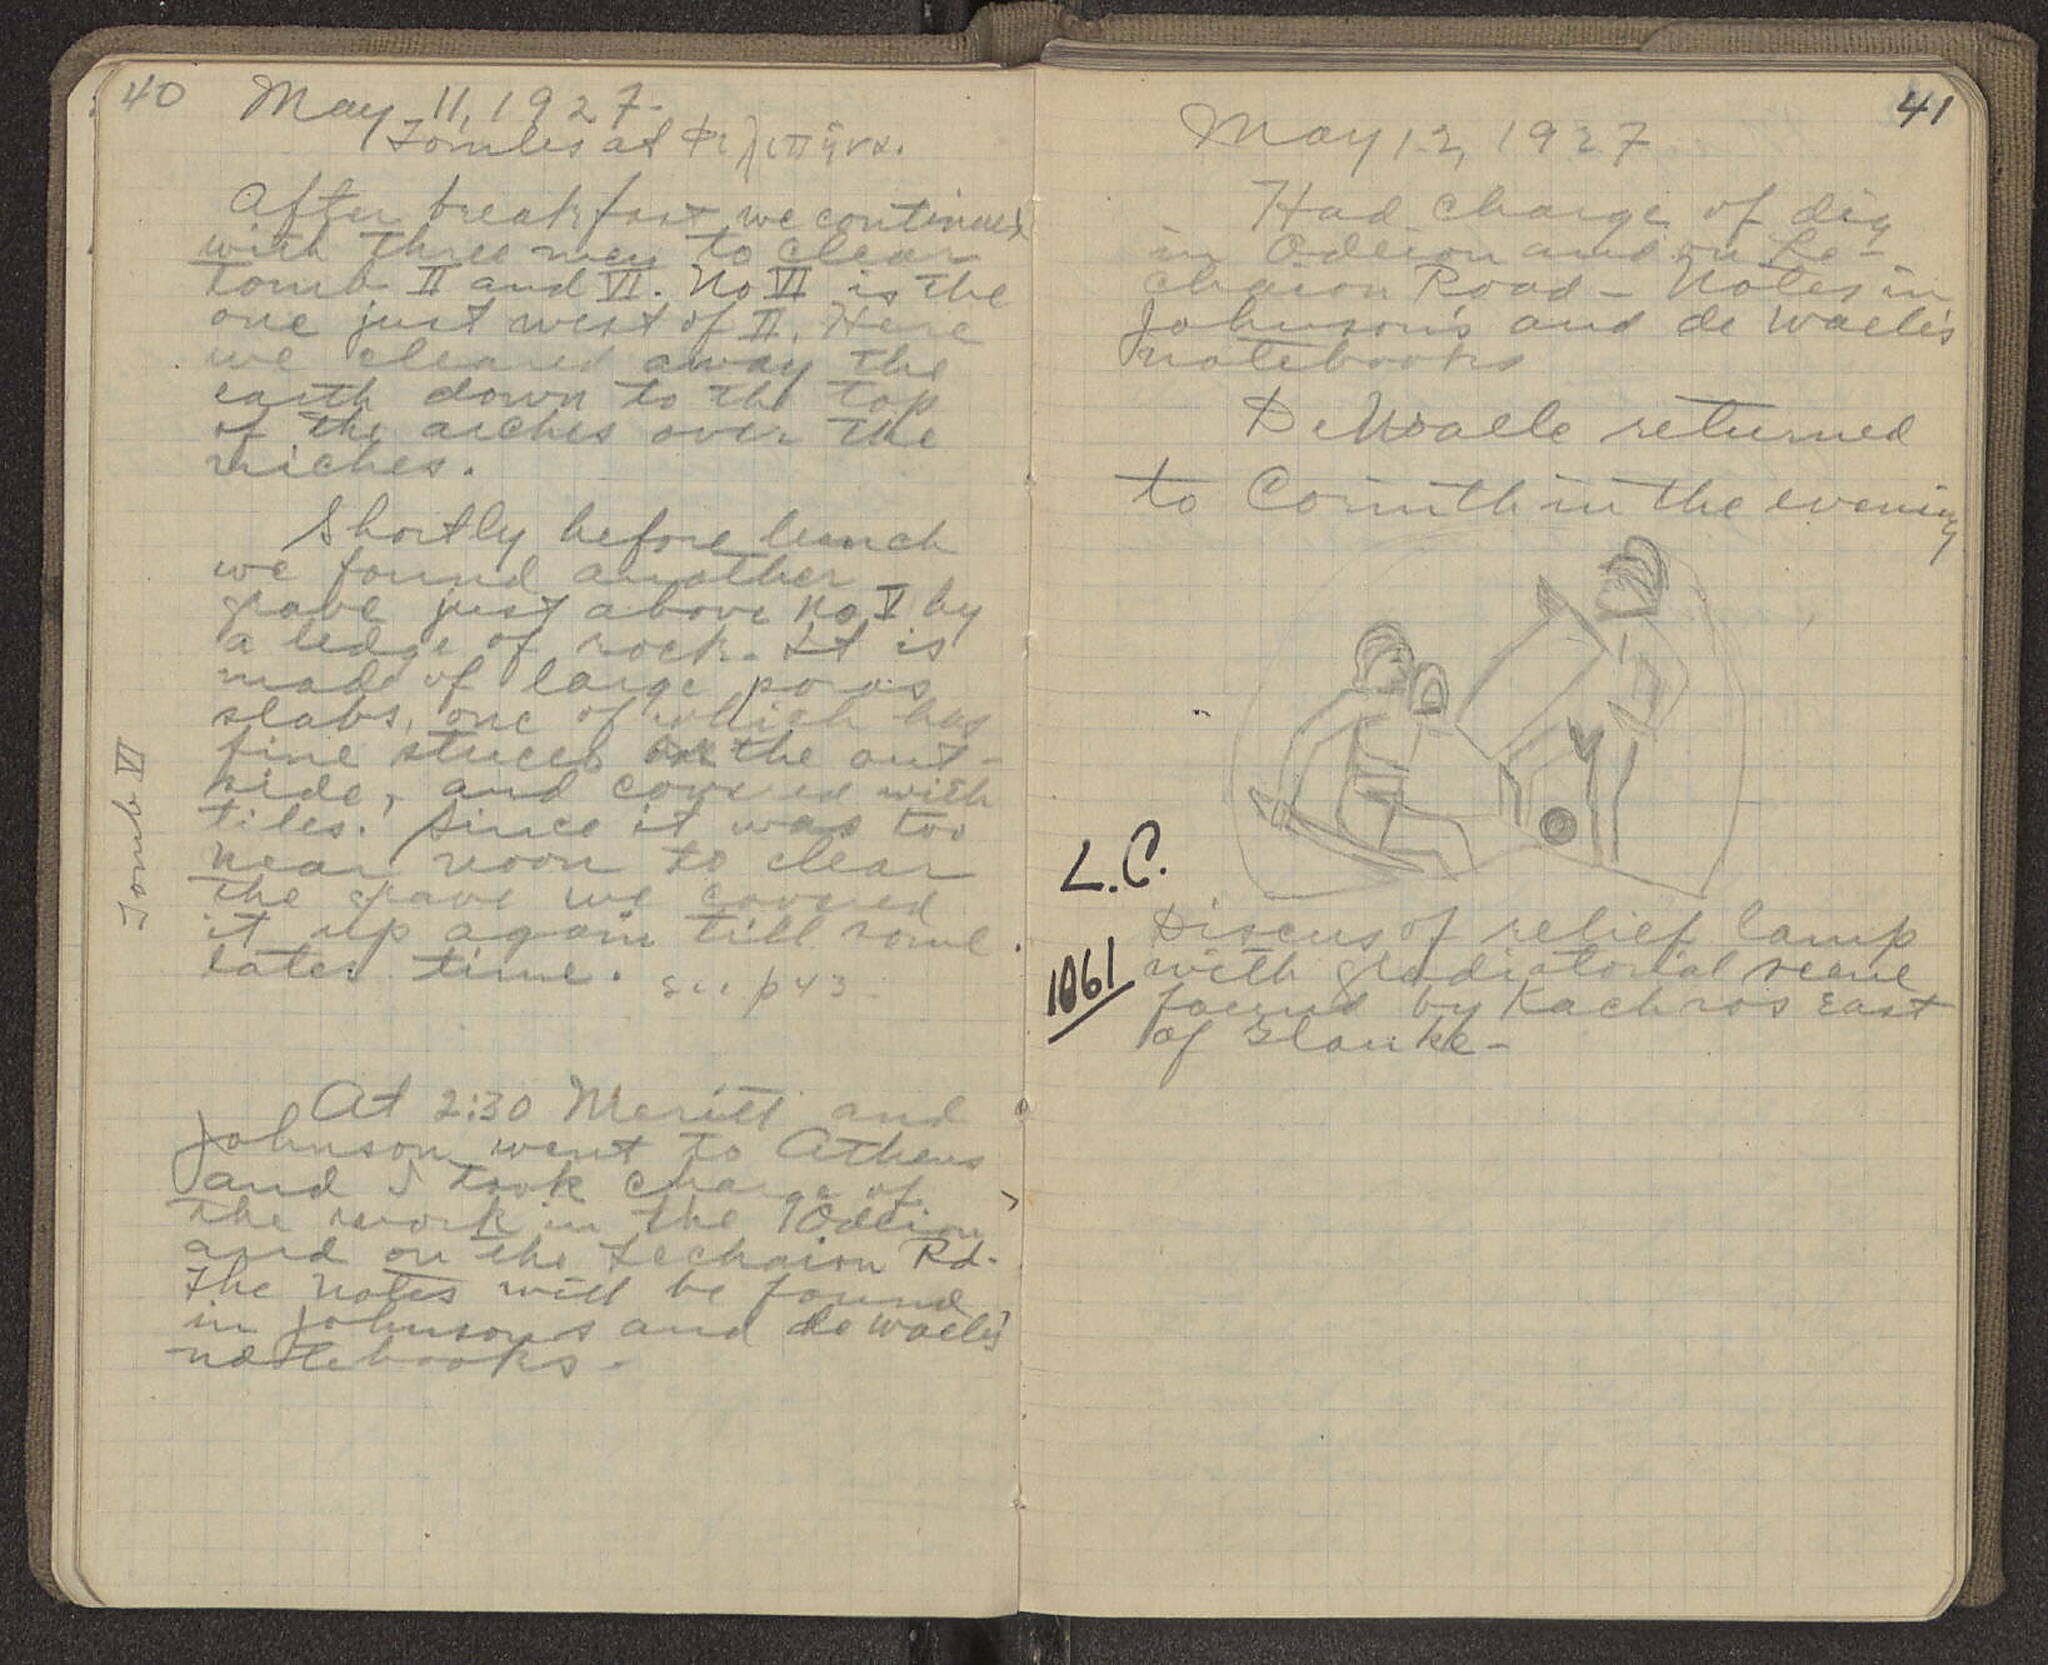 40
May 11, 1927.
Tombs at
After breakfast we continued
with three men to clear
tomb II and VI. No VI is the
one just west of II. Here
we cleared away the
earth down to the top
of the arches over the
niches.
Shortly before lunch
we found another
grave just above No V by
a ledge of rock. It is
made of large poros
slabs, one of which has
fine stucco on the out-
side, and covered with
tiles. Since it was too
near noon to clear
the grave we covered
it up again till some
later time. see p 43
Tomb VI
At 2:30 Meritt and
Johnson went to Athens
and I took charge of
the work in the Odeion
and on the Lechaion Rd.
The notes will be found
in Johnson's and de Waele's
notebooks.
41
May 12, 1927
Had charge of dig
in Odeion and on Le-
chaion Road - Notes in
Johnson's and de Waele's
notebooks
De Waele returned
to Corinth in the evening
L.C.
1061
Discus of relief lamp
with gladiatorial scene
found by Kachros east
of Glauke -